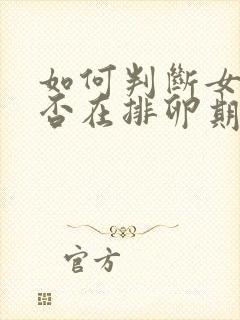 如何判斷女
否在排卵期
官方